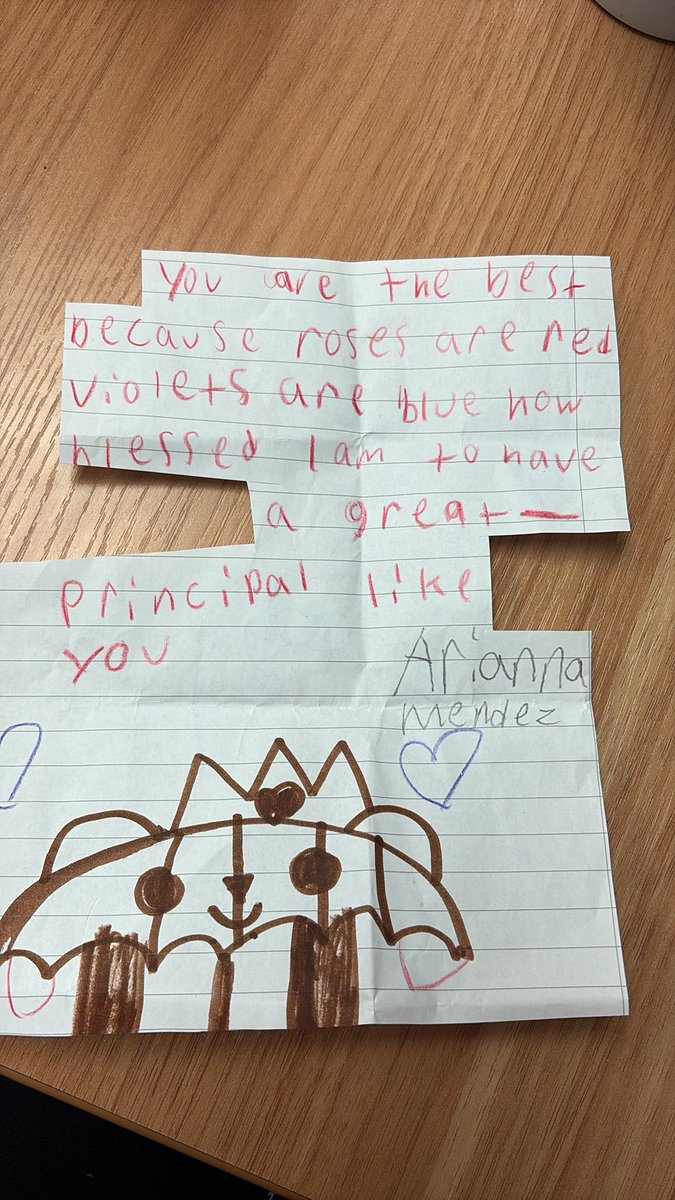 You are the best
because roses are red
violets are blue how
blessed I am to have
a great—
principal like
you
Arianna
mendez